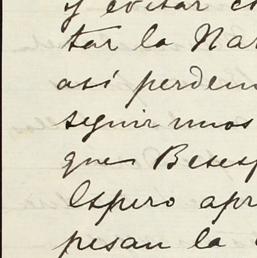 y evitar
tar la Nar
así perdem
seguir unos
que Beses
Espero apr
pesan la